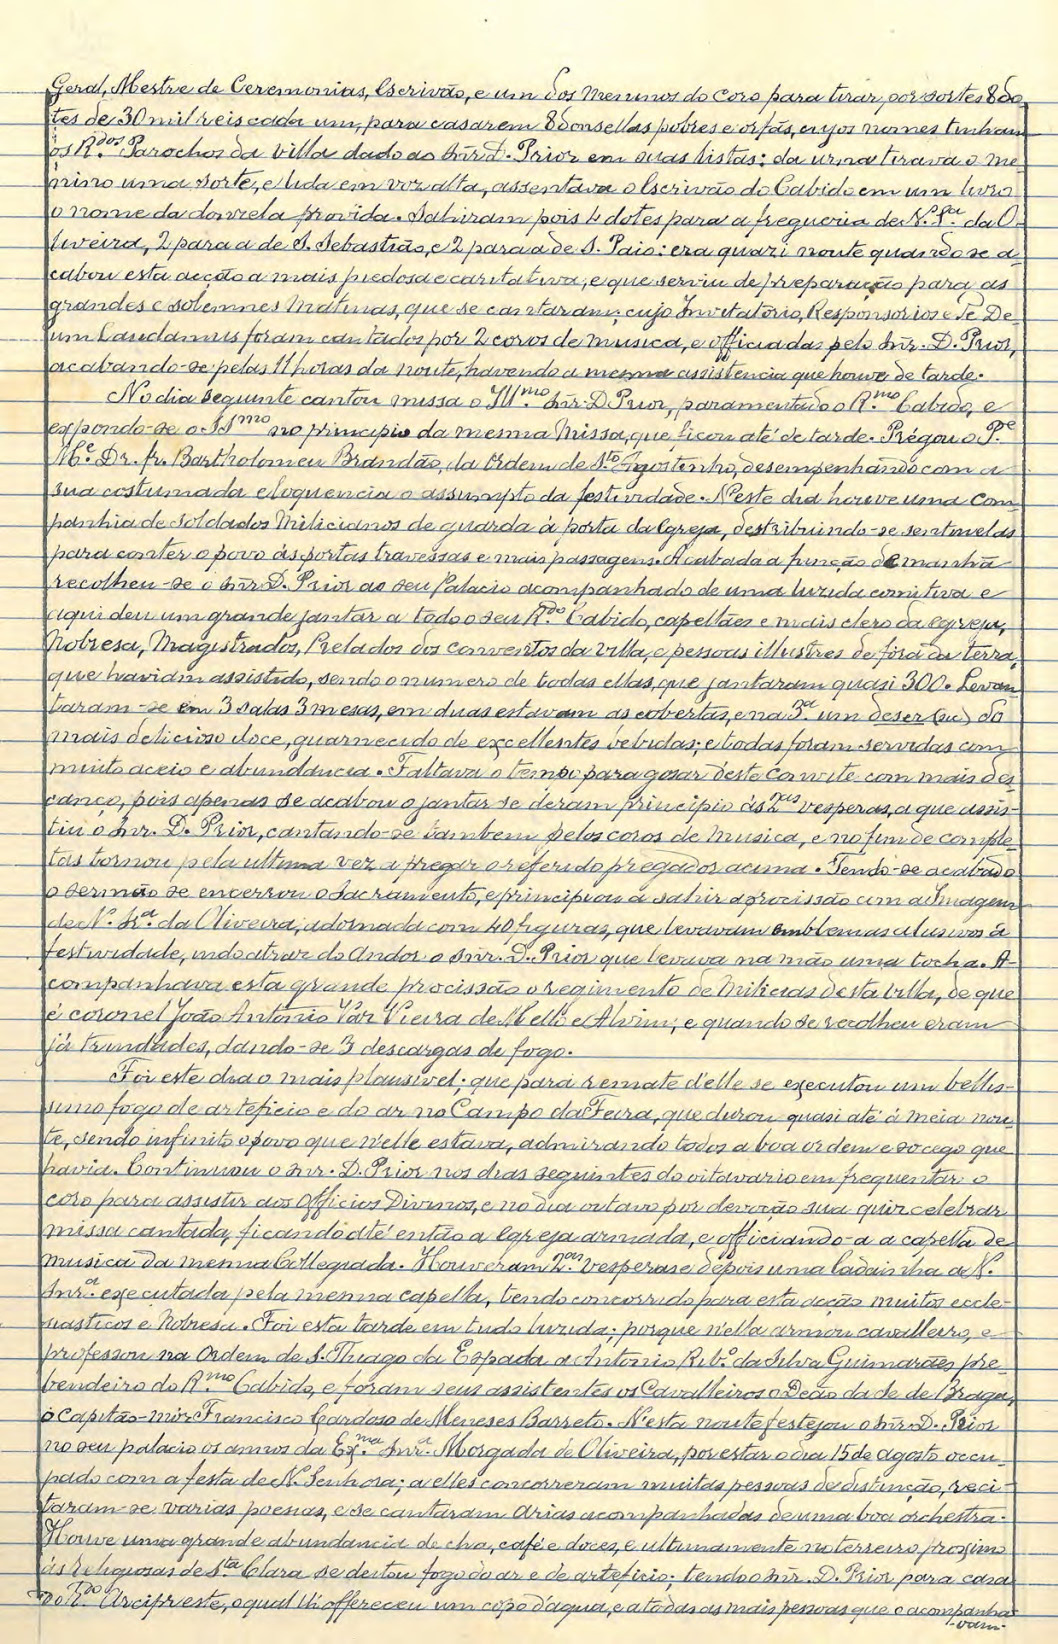 Geral, Mestre de Ceremonias, Escrivão, e um dos Meninos do Coro para tirar por sortes 8 do-
tes de 30 mil reis cada um, para casarem 8 donsellas pobres e orfãs, cujos nomes tinham
os R.dos Parochos da Villa dado ao Snr. D. Prior em suas listas: da urna tirava o me-
nino uma sorte, e lida em voz alta, assentava o Escrivão do Cabido em um livro
o nome da donzela provida. Sahiram pois 4 dotes para a freguezia de N. S.ra da O-
liveira, 2 para a de S. Sebastião, e 2 para a de S. Paio: era quazi noute quando se a-
cabou esta acção a mais piedosa e caritativa, e que serviu de preparação para as
grandes e solemnes Matinas, que se cantaram; cujo Invitatorio, Responsorios e Te De-
um Laudamus foram cantados por 2 coros de musica, e officiadas pelo Snr. D. Prior,
acabando-se pelas 11 horas da noute, havendo a mesma assistencia que houve de tarde.
No dia seguinte cantou missa o Ill.mo Snr. D. Prior, paramentado o R.mo Cabido, e
expondo-se o SS.mo no principio da mesma Missa, que ficou até de tarde. Prégou o P.e
M.e Dr. fr. Bartholomeu Brandão, da Ordem de S.to Agostinho, desempenhando com a
sua costumada eloquencia o assumpto da festividade. N'este dia houve uma com-
panhia de soldados Milicianos de guarda á porta da Egreja, destribuindo-se sentinelas
para conter o povo ás portas travessas e mais passagens. Acabada a função de manhã
recolheu-se o Snr. D. Prior ao seu Palacio acompanhado de uma luzida comitiva e
aqui deu um grande jantar a todo o seu R.do Cabido, capellães e mais clero da egreja,
Nobresa, Magistrados, Prelados dos conventos da Villa, e pessoas illustres de fóra da terra,
que haviam assistido, sendo o numero de todas ellas, que jantaram quasi 300. Levan-
taram-se em 3 salas 3 mesas, em duas estavam as cobertas, e na 3.a um deser (sic) do
mais delicioso doce, guarnecido de excellentes bebidas; e todas foram servidas com
muito aceio e abundancia. Faltava o tempo para gosar d'este convite com mais des-
canço, pois apenas se acabou o jantar se déram principio ás 2.as vesperas, a que assis-
tiu o Snr. D. Prior, cantando-se tambem pelos coros de Musica, e no fim de comple-
tas tornou pela ultima vez a pregar o referido pregador acima. Tendo-se acabado
o sermão se encerrou o Sacramento, e principiou a sahir a procissão com a Imagem
de N. Sr.a da Oliveira, adornada com 40 figuras, que levavam emblemas alusivos á
festividade, indo atraz do Andor o Snr. D. Prior que levava na mão uma tocha. A-
companhava esta grande procissão o regimento de Milicias desta Villa, de que
é coronel João Antonio Vaz Vieira de Mello e Alvim; e quando se recolheu eram
já trindades, dando-se 3 descargas de fogo.
Foi este dia o mais plausivel; que para remate d'elle se executou um bellis-
simo fogo de arteficio e do ar no Campo da Feira, que durou quasi até á meia nou-
te, sendo infinito o povo que n'elle estava, admirando todos a boa ordem e socego que
havia. Continuou o Snr. D. Prior nos dias seguintes do oitavario em frequentar o
coro para assistir aos Officios Divinos, e no dia outavo por devoção sua quiz celebrar
missa cantada, ficando até então a egreja armada, e officiando-a a capella de
musica da mesma Collegiada. Houveram 2.as Vesperas e depois uma ladainha a N.
Snr.a executada pela mesma capella, tendo concorrido para esta acção muitos eccle-
siasticos e Nobresa. Foi esta tarde em tudo luzida; porque n'ella armou cavalleiro, e
professou na Ordem de S. Thiago da Espada a Antonio Rib.o da Silva Guimarães pre-
bendeiro do R.mo Cabido, e foram seus assistentes os Cavalleiros o Deão da Sé de Braga,
o Capitão-mór Francisco Cardoso de Meneses Barreto. N'esta noute festejou o Snr. D. Prior
no seu palacio os annos da Ex.ma Snr.a Morgada de Oliveira, por estar o dia 15 de Agosto occu-
pado com a festa de N. Senhora; a elles concorreram muitas pessoas de distinção, reci-
taram-se varias poesias, e se cantaram Arias acompanhadas de uma boa orchestra.
Houve uma grande abundancia de cha, café e doces, e ultimamente no terreiro proximo
ás Religiosas de S.ta Clara se deitou fogo do ar e de arteficio; tendo o Snr. D. Prior para casa
do R.do Arcipreste, o qual lh'offereceu um copo d'agua, e a todas as mais pessoas que o acompanha-
vam.